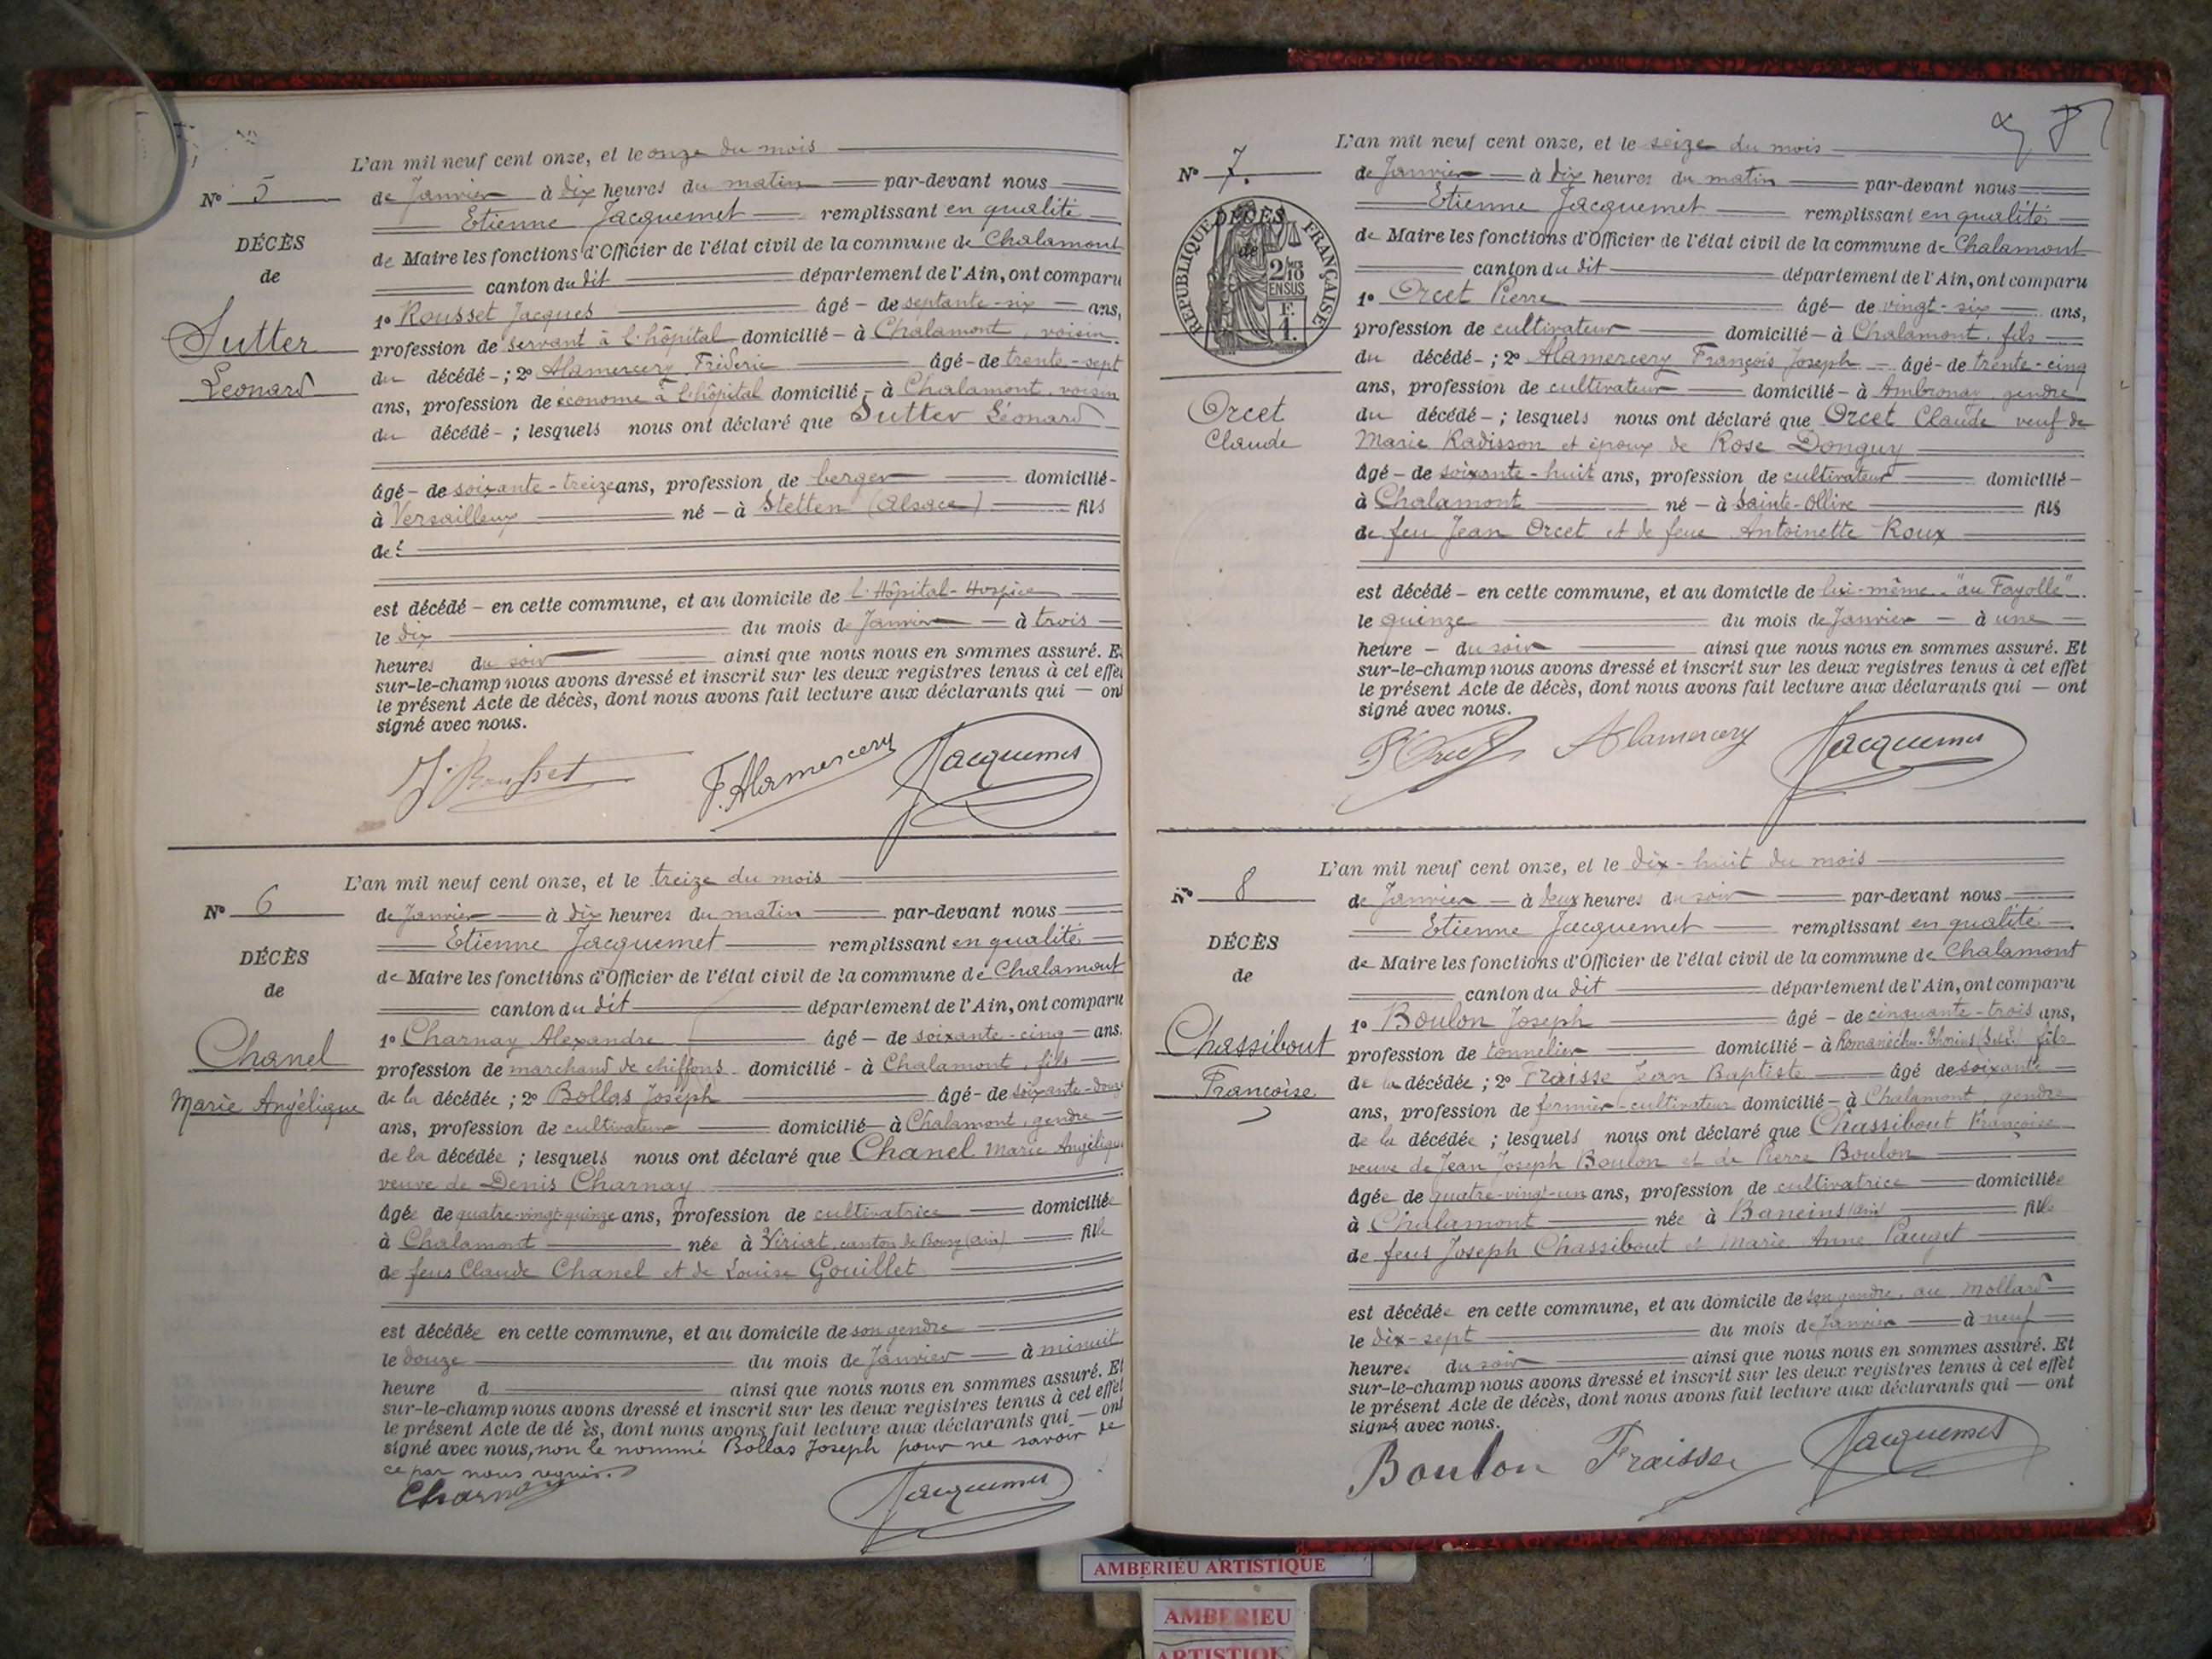 L'an mil neuf cent onze, et le onze du mois
N° 5
de Janvier à dix heures du matin par-devant nous
Etienne Jacquemet remplissant en qualité
DÉCÈS
de Maire les fonctions d'Officier de l'état civil de la commune de Chalamont
de
canton du dit département de l'Ain, ont comparu
1° Rousset Jacques âgé de septante-six ans,
Sutter
profession de servant à l'hôpital domicilié à Chalamont, voisin
du décédé ; 2° Alamercery Fréderic âgé de trente-sept
Leonard
ans, profession de econome à l'hôpital domicilié à Chalamont, voisin
du décédé ; lesquels nous ont déclaré que Sutter Léonard
âgé de soixante-treize ans, profession de berger domicilié
à Versailleux né à Stetten (Alsace) fils
de ?
est décédé en cette commune, et au domicile de l'Hôpital-Hospice
le dix du mois de Janvier à trois
heures du soir ainsi que nous nous en sommes assuré. E
sur-le-champ nous avons dressé et inscrit sur les deux registres tenus à cet effet
le présent Acte de décès, dont nous avons fait lecture aux déclarants qui — ont
signé avec nous.
J. Rousset F. Alamercery Jacquemet
L'an mil neuf cent onze, et le treize du mois
N° 6
de Janvier à dix heures du matin par-devant nous
Etienne Jacquemet remplissant en qualité
DÉCÈS
de Maire les fonctions d'Officier de l'état civil de la commune de Chalamont
de
canton du dit département de l'Ain, ont comparu
1° Charnay Alexandre âgé de soixante-cinq ans.
Chanel
profession de marchand de chiffons domicilié à Chalamont, fils
Marie Angélique
de la décédée ; 2° Bollas Joseph âgé de soixante-douze
ans, profession de cultivateur domicilié à Chalamont, gendre
de la décédée ; lesquels nous ont déclaré que Chanel Marie Angélique
veuve de Denis Charnay
âgée de quatre-vingt-quinze ans, profession de cultivatrice domiciliée
à Chalamont née à Viriat, canton de Bourg (Ain) fille
de feus Claude Chanel et de Louise Gouillet
est décédée en cette commune, et au domicile de son gendre
le douze du mois de Janvier à minuit
heure d ainsi que nous nous en sommes assuré. Et
sur-le-champ nous avons dressé et inscrit sur les deux registres tenus à cet effet
le présent Acte de dé ès, dont nous avons fait lecture aux déclarants qui — ont
signé avec nous, non le nommé Bollas Joseph pour ne savoir de
ce par nous requis.
Charnay Jacquemet
L'an mil neuf cent onze, et le seize du mois
N° 7.
de Janvier à dix heures du matin par-devant nous
Etienne Jacquemet remplissant en qualité
DÉCÈS
de
RÉPUBLIQUE FRANÇAISE
2/10
EN SUS
F.
1.
de Maire les fonctions d'Officier de l'état civil de la commune de Chalamont
canton du dit département de l'Ain, ont comparu
1° Orcet Pierre âgé de vingt-six ans,
profession de cultivateur domicilié à Chalamont, fils
du décédé ; 2° Alamercery François Joseph âgé de trente-cinq
ans, profession de cultivateur domicilié à Ambronay, gendre
Orcet
Claude
du décédé ; lesquels nous ont déclaré que Orcet Claude veuf de
Marie Radisson et époux de Rose Donguy
âgé de soixante-huit ans, profession de cultivateur domicilié
à Chalamont né à Sainte-Ollive fils
de feu Jean Orcet et de feue Antoinette Roux
est décédé en cette commune, et au domicile de lui-même "au Fayolle"
le quinze du mois de Janvier à une
heure du soir ainsi que nous nous en sommes assuré. Et
sur-le-champ nous avons dressé et inscrit sur les deux registres tenus à cet effet
le présent Acte de décès, dont nous avons fait lecture aux déclarants qui — ont
signé avec nous.
P. Orcet Alamercery Jacquemet
L'an mil neuf cent onze, et le dix-huit du mois
N° 8
de Janvier à deux heures du soir par-devant nous
Etienne Jacquemet remplissant en qualité
DÉCÈS
de Maire les fonctions d'Officier de l'état civil de la commune de Chalamont
de
canton du dit département de l'Ain, ont comparu
1° Boulon Joseph âgé de cinquante-trois ans,
Chassibout
profession de tonnelier domicilié à Romanèche-Thorins (S.&L.) fils
de la décédée ; 2° Fraisse Jean Baptiste âgé de soixante
Françoise
ans, profession de fermier-cultivateur domicilié à Chalamont, gendre
de la décédée ; lesquels nous ont déclaré que Chassibout Françoise
veuve de Jean Joseph Boulon et de Pierre Boulon
âgée de quatre-vingt-un ans, profession de cultivatrice domiciliée
à Chalamont née à Baneins (Ain) fille
de feus Joseph Chassibout et Marie Anne Pauget
est décédée en cette commune, et au domicile de son gendre, au Mollard
le dix-sept du mois de Janvier à neuf
heures du soir ainsi que nous nous en sommes assuré. Et
sur-le-champ nous avons dressé et inscrit sur les deux registres tenus à cet effet
le présent Acte de décès, dont nous avons fait lecture aux déclarants qui — ont
signé avec nous.
Boulon Fraisse Jacquemet
AMBERIEU ARTISTIQUE
AMBERIEU
ARTISTIQUE